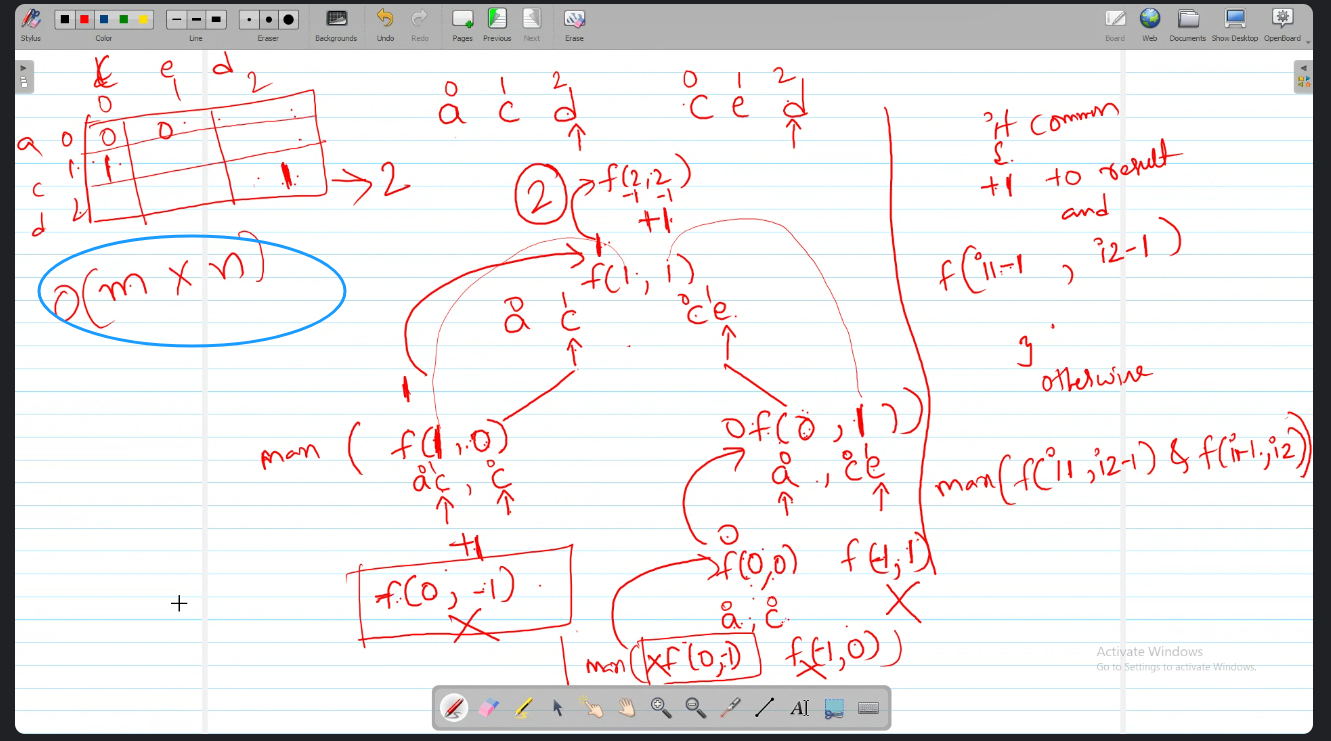 Stylus Color Line Eraser Backgrounds Undo Redo Pages Previous Next Erase Board Web Documents Show Desktop OpenBoard
e d
0 1 2
a 0 0 0
c 1 1 1 → 2
d 2
0 1 2
a c d
0 1 2
c e d
2 f(2,2)
-1 -1
+1
1
f(1, 1)
0 1
a c
0 1
c e
O(m x n)
1
man ( f(1,0)
0 1 0
a c , c
+1
f(0, -1)
X
0 f(0, 1))
0 0 1
a , c e
0
f(0,0) f(-1,1)
X
0 0
a , c
man( x f(0,-1) f(-1,0))
X
if common
+1 to result
and
f(i1-1 , i2-1)
}
otherwise
man(f(i1, i2-1) & f(i1-1, i2))
Activate Windows
Go to Settings to activate Windows.
AI